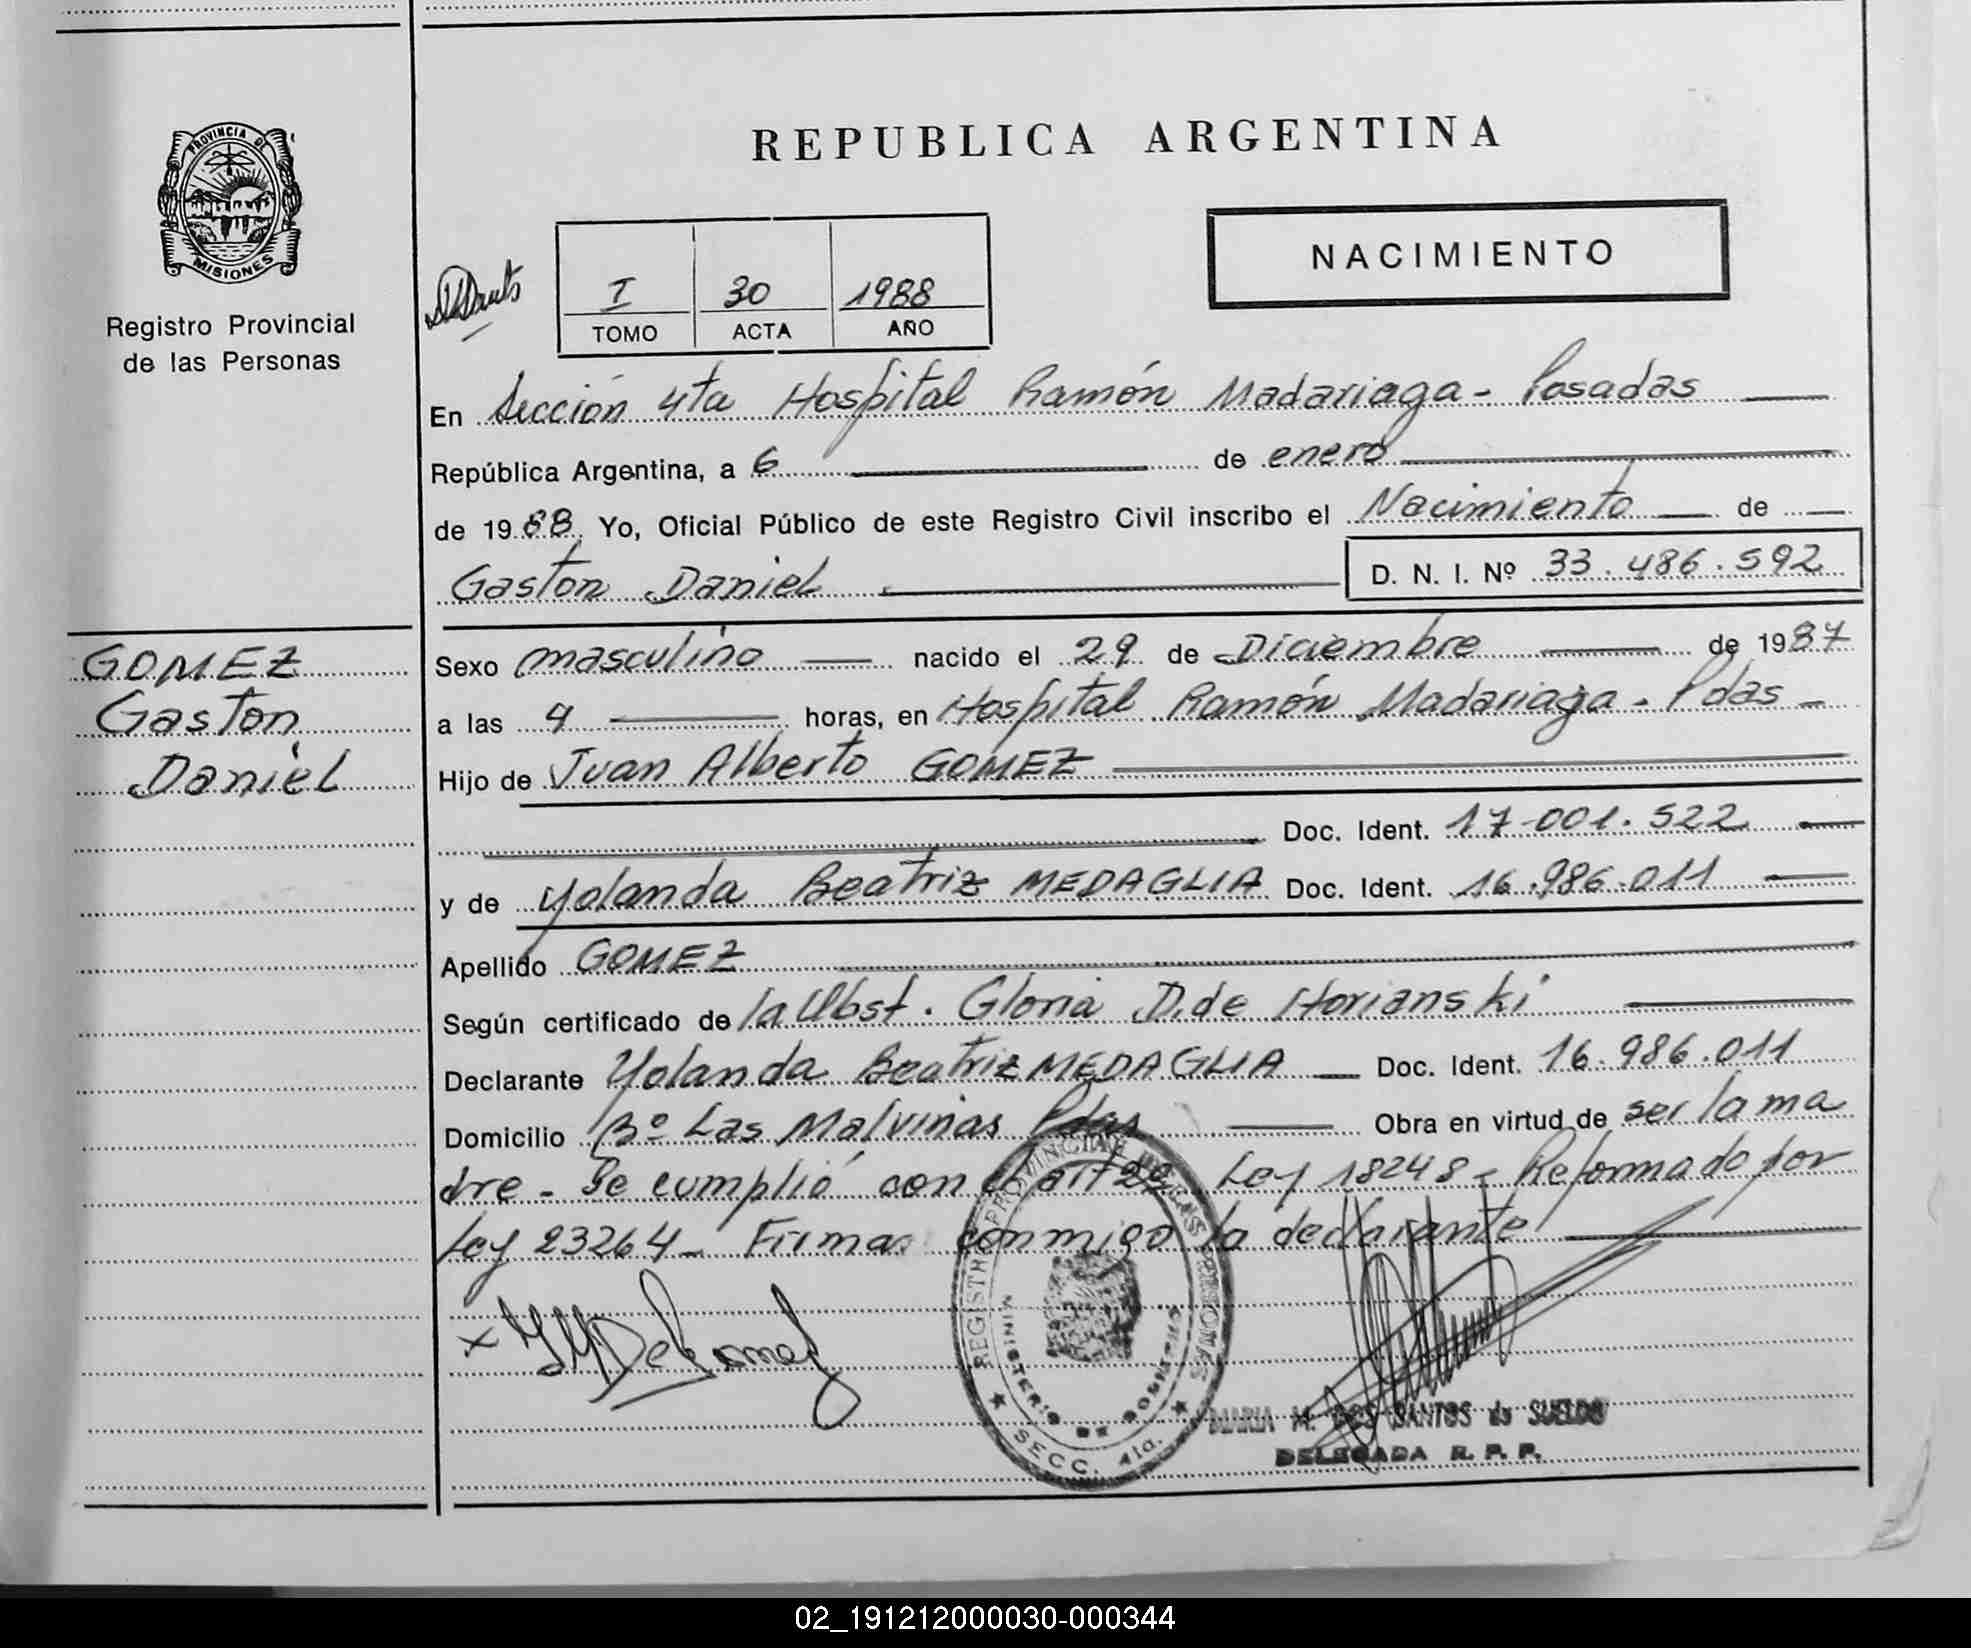 PROVINCIA DE
MISIONES
Registro Provincial
de las Personas
REPUBLICA ARGENTINA
NACIMIENTO
I 30 1988
TOMO ACTA AÑO
En Sección 4ta Hospital Ramón Madariaga - Posadas
República Argentina, a 6 de enero
de 1988 Yo, Oficial Público de este Registro Civil inscribo el Nacimiento de
Gaston Daniel D. N. I. Nº 33.486.592
GOMEZ
Gaston
Daniel
Sexo masculino nacido el 29 de Diciembre de 1987
a las 4 horas, en Hospital Ramón Madariaga - Pdas -
Hijo de Juan Alberto GOMEZ
Doc. Ident. 17.001.522
y de Yolanda Beatriz MEDAGLIA Doc. Ident. 16.986.011
Apellido GOMEZ
Según certificado de la Obst. Gloria D. de Horianski
Declarante Yolanda Beatriz MEDAGLIA Doc. Ident. 16.986.011
Domicilio Bº Las Malvinas Pdas Obra en virtud de ser la ma
dre - Se cumplió con el art 2º Ley 18248 - Reformado por
Ley 23264 - Firma conmigo la declarante
REGISTRO PROVINCIAL DE LAS PERSONAS
MINISTERIO DE GOBIERNO
SECC. 4ta.
MARIA M. DOS SANTOS de SUELDO
DELEGADA R. P. P.
02_191212000030-000344